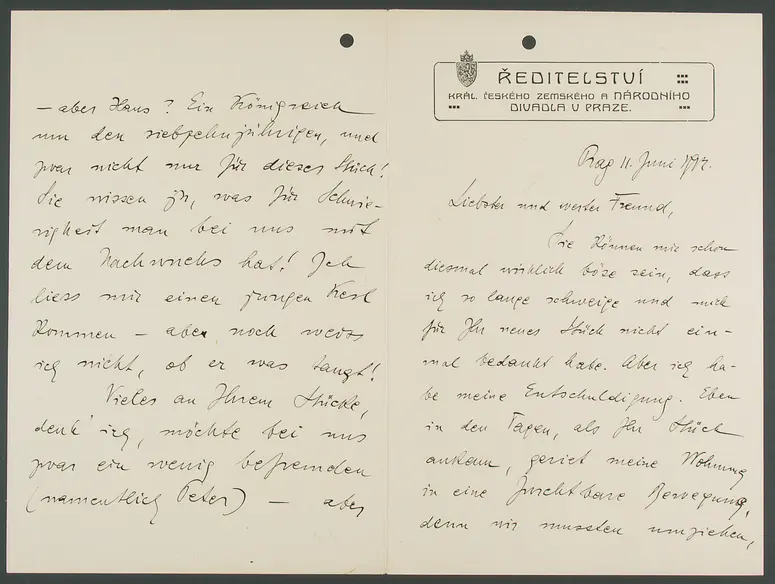 ŘEDITELSTVÍ
KRÁL. ČESKÉHO ZEMSKÉHO A NÁRODNÍHO
DIVADLA V PRAZE.
Prag 11. Juni 1917.
Liebster und werter Freund,
Sie können mir schon
diesmal wirklich böse sein, dass
ich so lange schweige und mich
für Ihr neues Stück nicht ein-
mal bedankt habe. Aber ich ha-
be meine Entschuldigung. Eben
in den Tagen, als Ihr Stück
ankam, geriet meine Wohnung
in eine furchtbare Bewegung,
denn wir mussten umziehen,
– aber Hans? Ein Königreich
um den siebzehnjährigen, und
zwar nicht nur für dieses Stück!
Sie wissen ja, was für Schwie-
rigkeit man bei uns mit
dem Nachwuchs hat! Ich
liess mir einen jungen Kerl
kommen – aber noch weiss
ich nicht, ob er was taugt!
Vieles an Ihrem Stücke,
denk' ich, möchte bei uns
zwar ein wenig befremden
(namentlich Peter) – aber